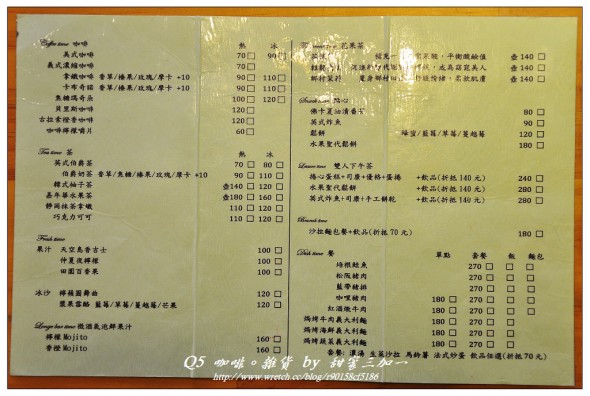 Coffee time 咖啡 熱 冰
美式咖啡 70 □ 90 □
義式濃縮咖啡 70 □
拿鐵咖啡 香草/榛果/玫瑰/摩卡 +10 90 □ 110 □
卡布奇諾 香草/榛果/玫瑰/摩卡 +10 90 □ 110 □
焦糖瑪奇朵 100 □ 120 □
貝里斯咖啡 120 □
古拉索橙香咖啡 120 □
咖啡檸檬嚼片 60 □
Tea time 茶 熱 冰
英式伯爵茶 70 □ 80 □
伯爵奶茶 香草/焦糖/榛果/玫瑰/摩卡 +10 90 □ 110 □
韓式柚子茶 壺140 □ 120 □
嘉年華水果茶 壺180 □ 160 □
靜岡抹茶拿鐵 110 □ 120 □
巧克力可可 110 □ 120 □
Fresh time
果汁 天空島香吉士 100 □
仲夏夜檸檬 100 □
田園百香果 100 □
冰沙 檸檬圓舞曲 120 □
漿果雪酪 藍莓/草莓/蔓越莓/芒果 120 □
Lounge bar time 微酒氣泡鮮果汁
檸檬 Mojito 160 □
香橙 Mojito 160 □
time 花果茶
壺 140 □
成為窈窕美人 壺 140 □
柔軟肌膚 壺 140 □
Snack time 點心
80 □
英式炸魚 90 □
鬆餅 蜂蜜/藍莓/草莓/蔓越莓 120 □
水果聖代鬆餅 180 □
Leisure time 雙人下午茶
捲心蛋糕+司康+優格+蛋捲 +飲品(折抵 140 元) 240 □
水果聖代鬆餅 +飲品(折抵 140 元) 280 □
英式炸魚+司康+手工餅乾 +飲品(折抵 140 元) 280 □
Brunch time
沙拉麵包餐+飲品(折抵 70 元) 180 □
Dish time 餐 單點 套餐 飯 麵包
培根鮭魚 270 □ □ □
松阪豬肉 270 □ □ □
藍帶豬排 270 □ □ □
咖哩豬肉 180 □ 270 □ □ □
紅酒燉牛肉 180 □ 270 □ □ □
焗烤牛肉義大利麵 180 □ 270 □ □
焗烤海鮮義大利麵 180 □ 270 □ □
焗烤蔬菜義大利麵 180 □ 270 □ □
套餐: 濃湯 生菜沙拉 馬鈴薯 法式炒蛋 飲品任選(折抵 70 元)
Q5 咖啡。雜貨 by 甜蜜三加一
http://www.wretch.cc/blog/r90158cf5186